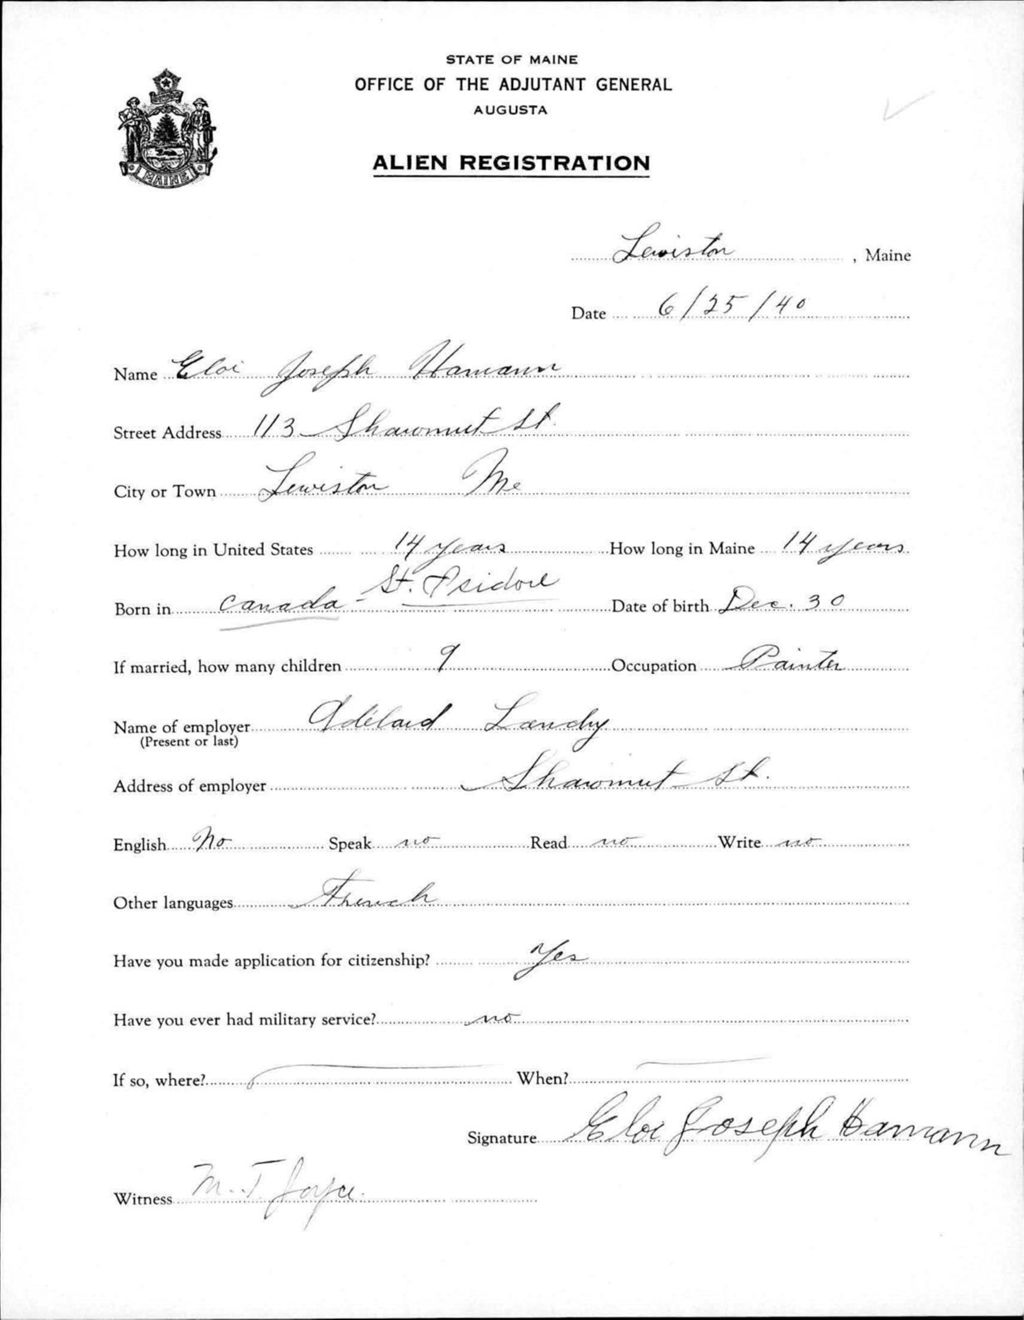 STATE OF MAINE
OFFICE OF THE ADJUTANT GENERAL
AUGUSTA
MAINE
ALIEN REGISTRATION
Lewiston, Maine
Date 6/25/40
Name Eloi Joseph Hamann
Street Address 113 Shawmut St.
City or Town Lewiston Me
How long in United States 14 years How long in Maine 14 years
Born in Canada - St. Isidore Date of birth Dec. 30
If married, how many children 9 Occupation Painter
Name of employer Adélard Landry
(Present or last)
Address of employer Shawmut St.
English No Speak no Read no Write no
Other languages French
Have you made application for citizenship? Yes
Have you ever had military service? no
If so, where? When?
Signature Eloi Joseph Hamann
Witness M. T. Joyce